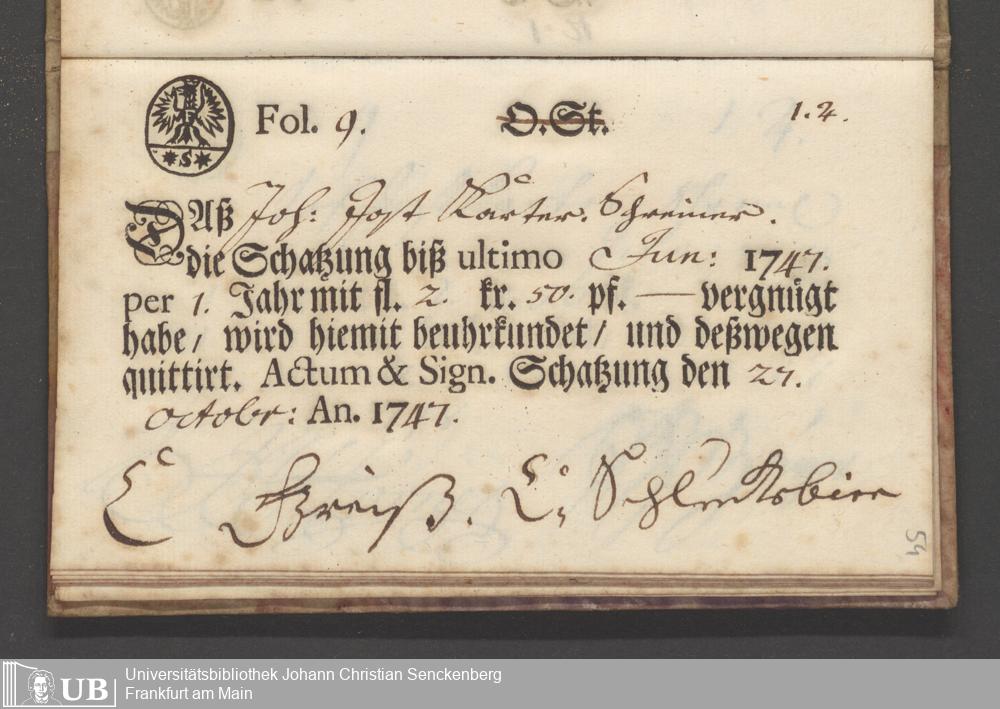 Fol. 9. O.St. 1.2.
S
Daß Joh: Jost Karter. Schreiner.
die Schatzung biß ultimo Jun: 1747.
per 1. Jahr mit fl. 2. kr. 50. pf. — vergnügt
habe / wird hiemit beuhrkundet / und deßwegen
quittirt. Actum & Sign. Schatzung den 27.
Octobr: An. 1747.
54
Universitätsbibliothek Johann Christian Senckenberg
UB Frankfurt am Main